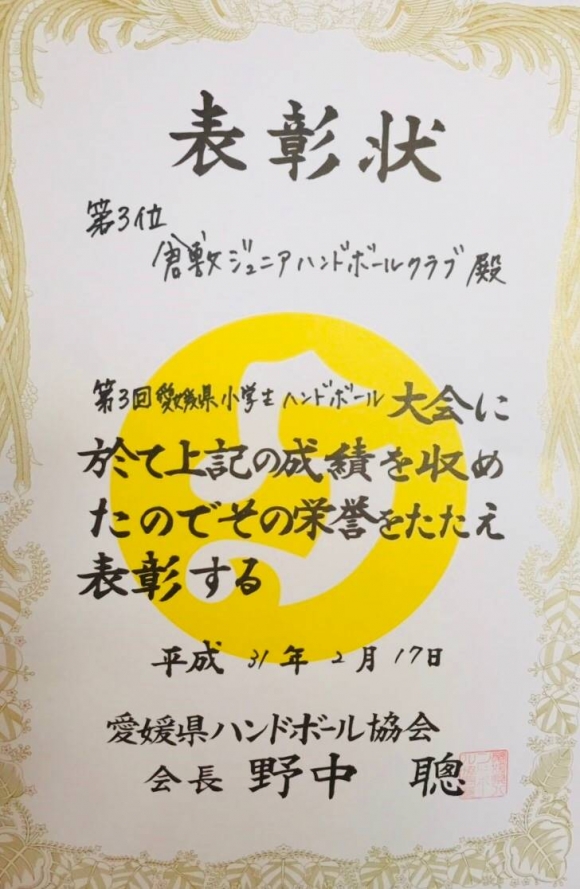 表彰状
第3位
倉敷ジュニアハンドボールクラブ 殿
第3回愛媛県小学生ハンドボール大会に
於て上記の成績を収め
たのでその栄誉をたたえ
表彰する
平成31年2月17日
愛媛県ハンドボール協会
会長 野中 聰